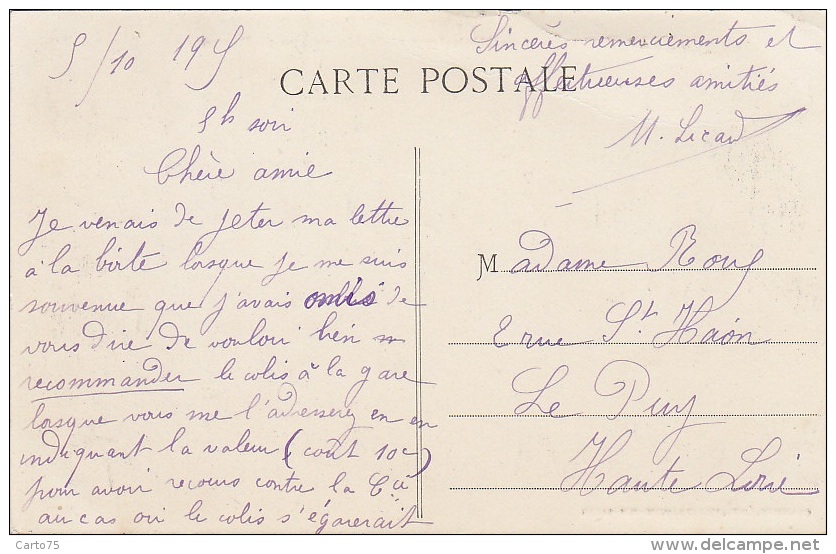 5/10 19 5
Sincères remerciements et
affectueuses amitiés
CARTE POSTALE
M. Licard
5h soir
Chère amie
Je venais de jeter ma lettre
à la boîte lorsque je me suis
souvenue que j'avais omis de
vous dire de vouloir bien
recommander le colis à la gare
lorsque vous me l'adresserez en en
indiquant la valeur (coût 10c)
pour avoir recours contre la Cie
au cas où le colis s'égarerait
Madame
2 rue St Haon
Le Puy
Haute Loire
Carto75
delcampe.net